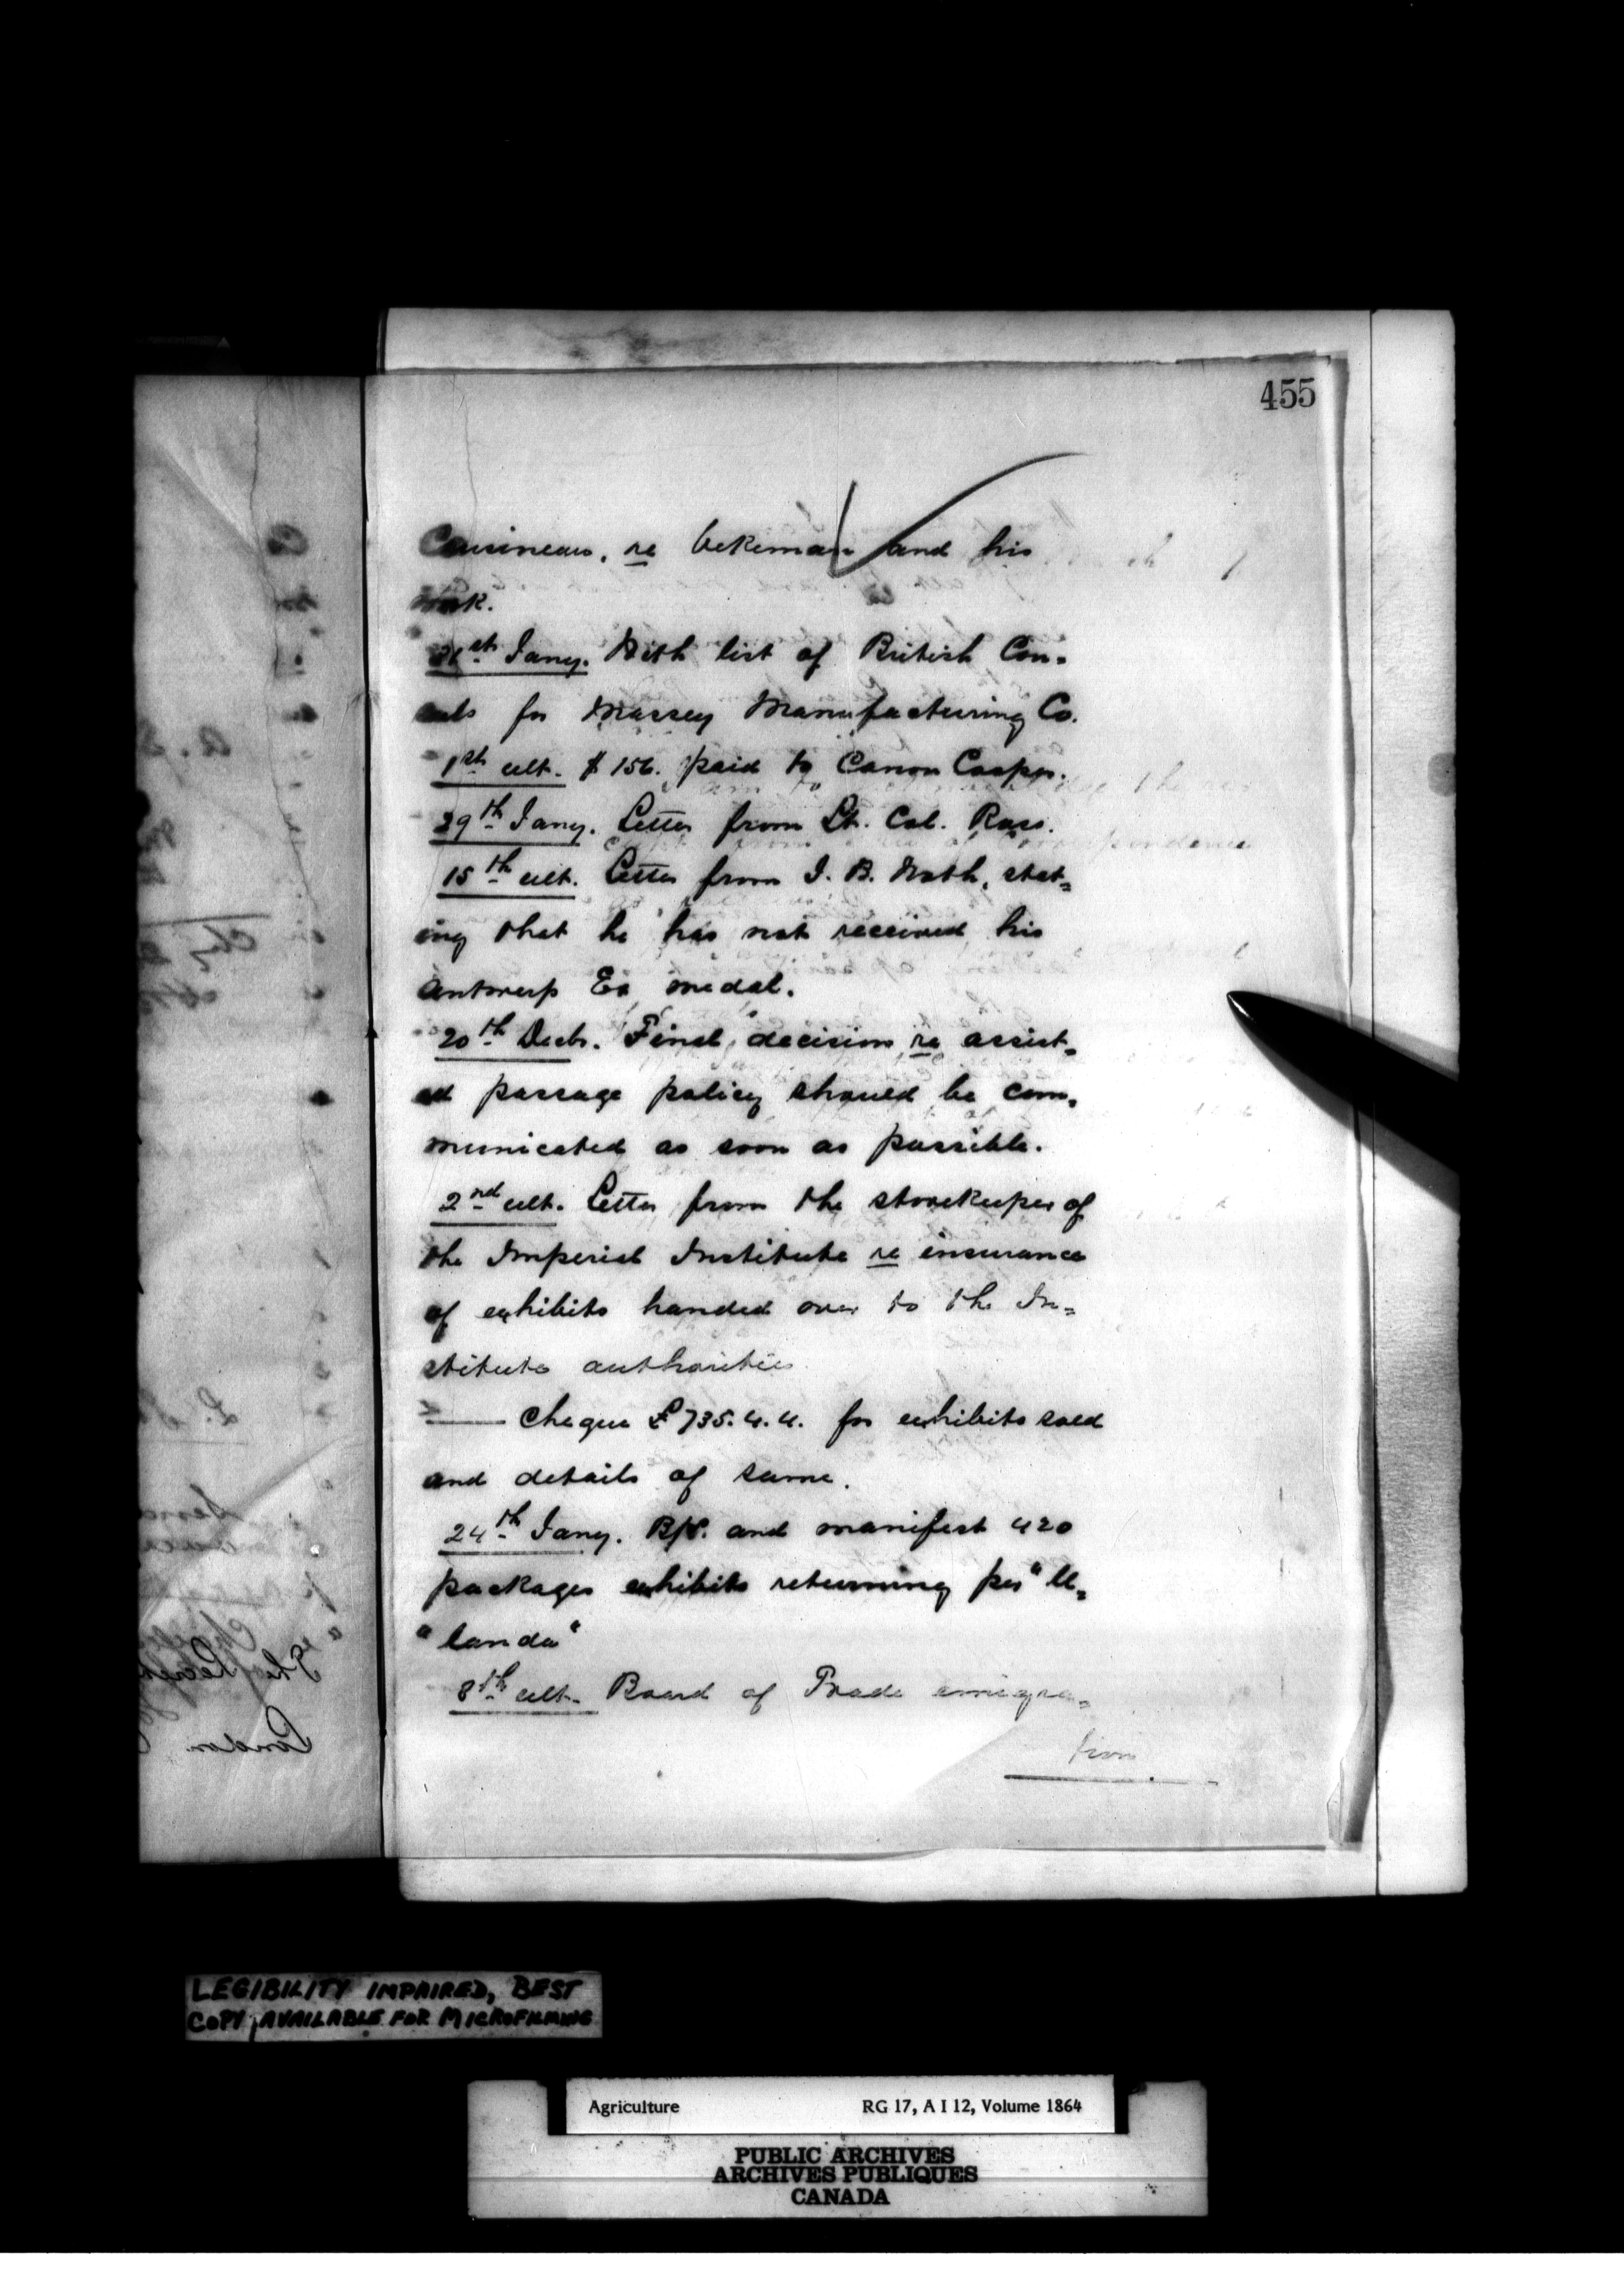 455
Cousineau, re Vekeman and his
work.
31st Jany. With list of British Con-
suls for Massey Manufacturing Co.
1st ult. $156. paid to Canon Cooper.
29th Jany. Letter from Lt. Col. Ross.
15th ult. Letter from J. B. North, stat-
ing that he has not received his
Antwerp Ex medal.
20th Decbr. Final decision re assist-
ed passage policy should be com-
municated as soon as possible.
2nd ult. Letter from the storekeeper of
the Imperial Institute re insurance
of exhibits handed over to the In-
stitute authorities.
" — Cheque £735.4.4. for exhibits sold
and details of same.
24th Jany. B/L. and manifest 420
packages exhibits returning per "Ul-
"landa"
8th ult. Board of Trade emigra-
tion
London
LEGIBILITY IMPAIRED, BEST
COPY AVAILABLE FOR MICROFILMING
Agriculture RG 17, A I 12, Volume 1864
PUBLIC ARCHIVES
ARCHIVES PUBLIQUES
CANADA